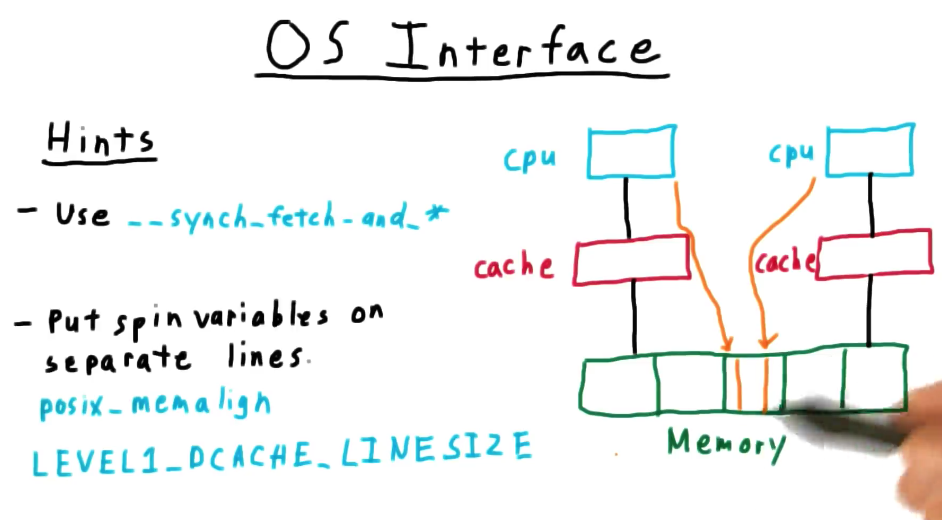 OS Interface
Hints
- Use __synch_fetch-and_*
- Put spin variables on
separate lines.
posix_memalign
LEVEL1_DCACHE_LINESIZE
cpu
cpu
cache
cache
Memory